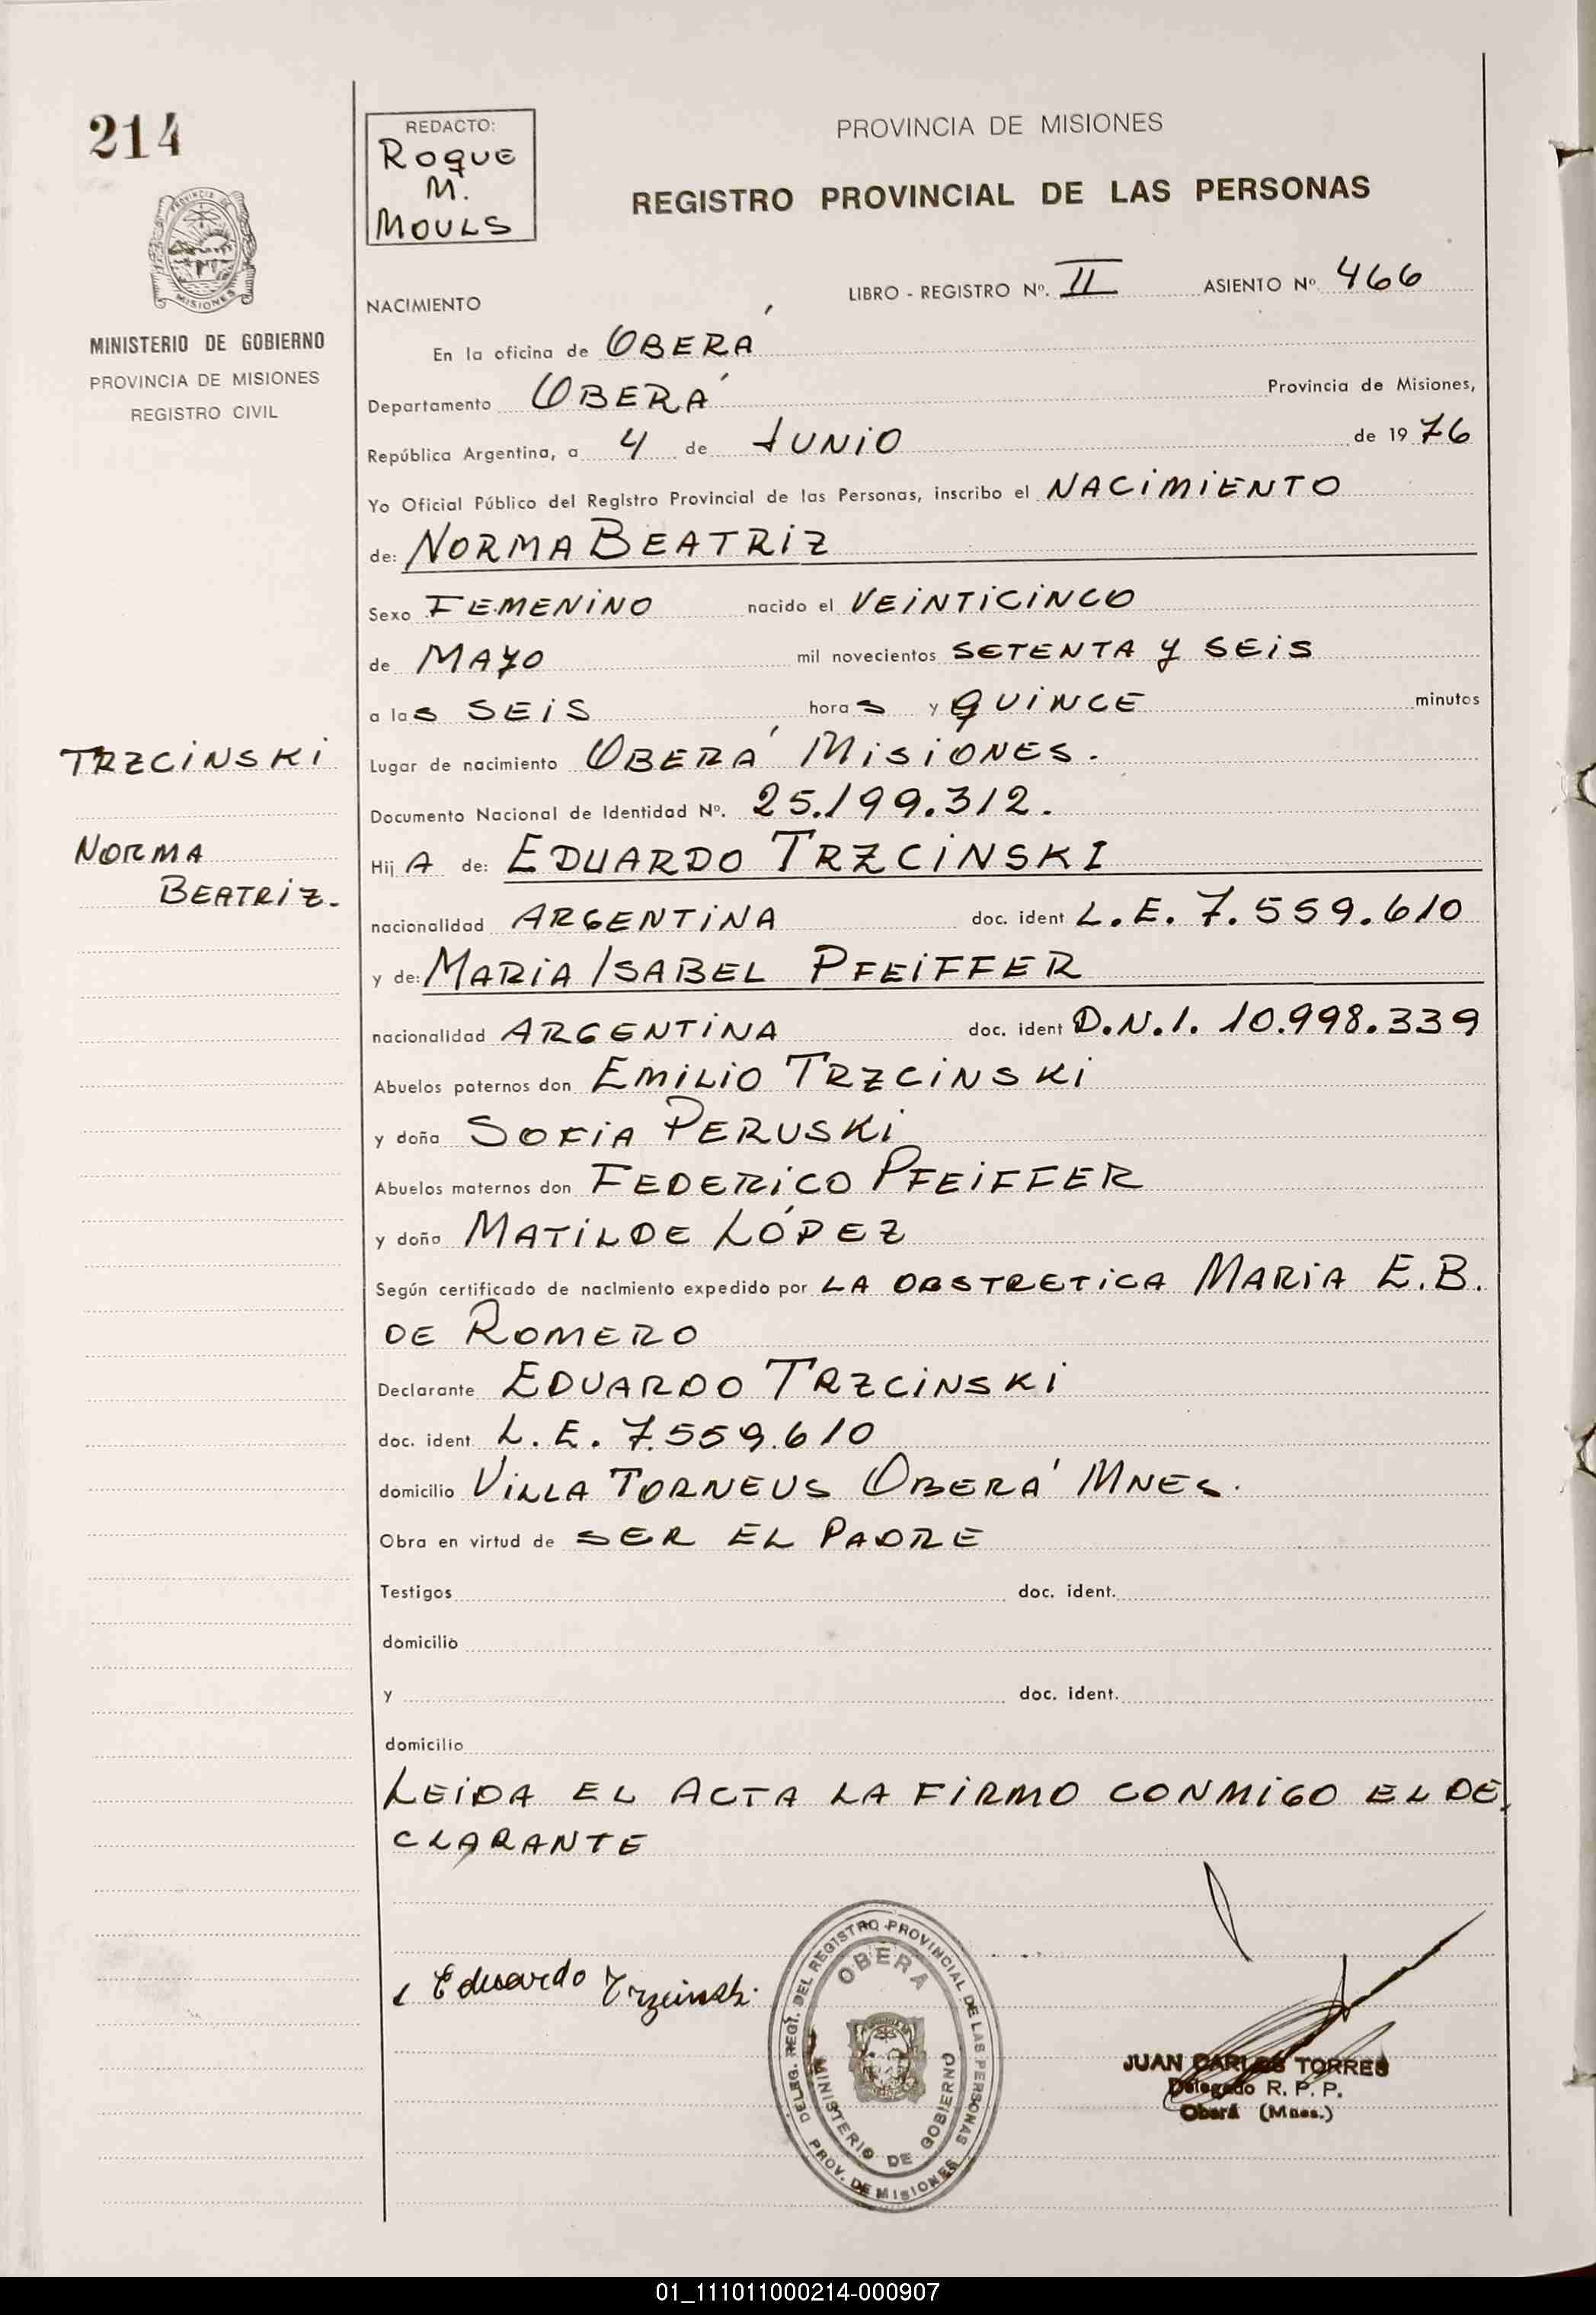 214
REDACTO:
ROQUE
M.
MOULS
PROVINCIA DE MISIONES
REGISTRO PROVINCIAL DE LAS PERSONAS
PROVINCIA DE
MISIONES
MINISTERIO DE GOBIERNO
PROVINCIA DE MISIONES
REGISTRO CIVIL
NACIMIENTO LIBRO - REGISTRO Nº. II ASIENTO Nº. 466
En la oficina de OBERÁ
Departamento OBERÁ Provincia de Misiones,
República Argentina, a 4 de JUNIO de 1976
Yo Oficial Público del Registro Provincial de las Personas, inscribo el NACIMIENTO
de: NORMA BEATRIZ
Sexo FEMENINO nacido el VEINTICINCO
de MAYO mil novecientos SETENTA Y SEIS
a las SEIS horas y QUINCE minutos
TRZCINSKI
Lugar de nacimiento OBERÁ MISIONES.
Documento Nacional de Identidad Nº. 25.199.312.
NORMA
BEATRIZ.
Hija de: EDUARDO TRZCINSKI
nacionalidad ARGENTINA doc. ident L.E. 7.559.610
y de: MARIA ISABEL PFEIFFER
nacionalidad ARGENTINA doc. ident D.N.I. 10.998.339
Abuelos paternos don EMILIO TRZCINSKI
y doña SOFIA PERUSKI
Abuelos maternos don FEDERICO PFEIFFER
y doña MATILDE LÓPEZ
Según certificado de nacimiento expedido por LA OBSTRETICA MARIA E.B.
DE ROMERO
Declarante EDUARDO TRZCINSKI
doc. ident L.E. 7.559.610
domicilio VILLA TORNEUS OBERÁ MNES.
Obra en virtud de SER EL PADRE
Testigos doc. ident.
domicilio
y doc. ident.
domicilio
LEIDA EL ACTA LA FIRMO CONMIGO EL DE
CLARANTE
Eduardo Trzcinski
DELEG. REGI. DEL REGISTRO PROVINCIAL DE LAS PERSONAS
PROV. DE MISIONES
OBERA
MINISTERIO DE GOBIERNO
JUAN CARLOS TORRES
Delegado R. P. P.
Oberá (Mnes.)
01_111011000214-000907